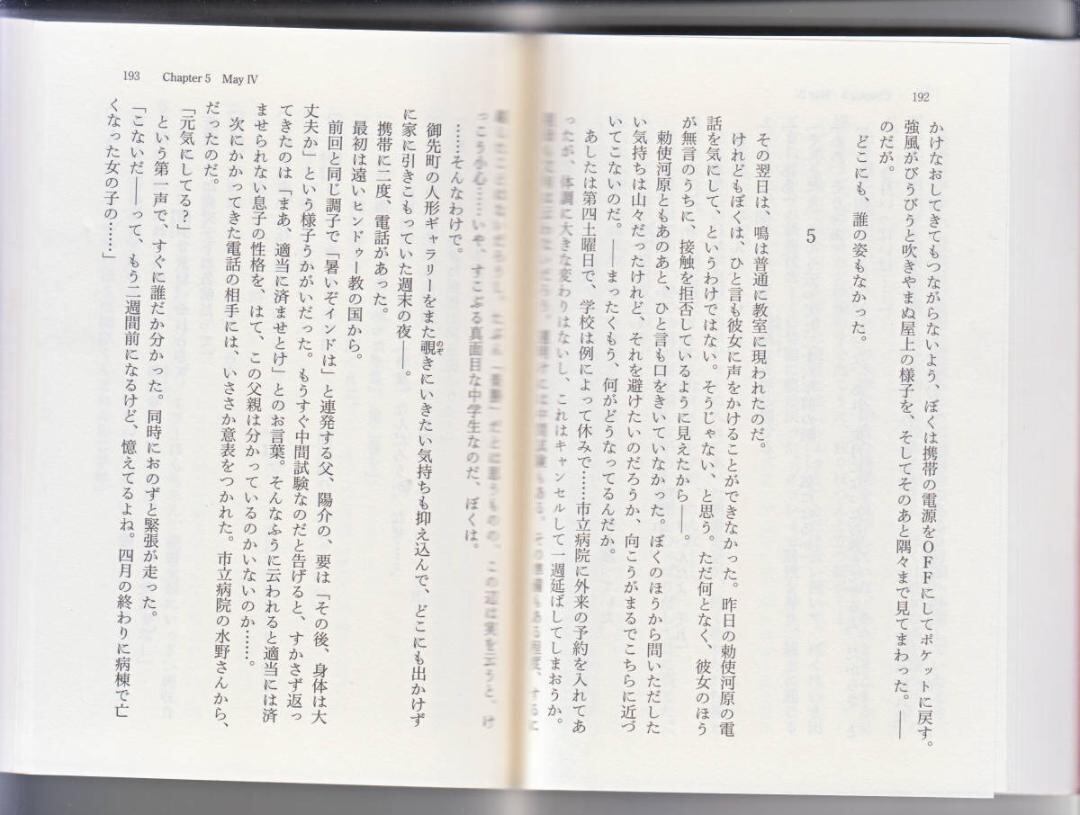 192
かけなおしてきてもつながらないよう、ぼくは携帯の電源をOFFにしてポケットに戻す。
強風がびうびうと吹きやまぬ屋上の様子を、そしてそのあと隅々まで見てまわった。――
のだが。
どこにも、誰の姿もなかった。
5
その翌日は、鳴は普通に教室に現われたのだ。
けれどもぼくは、ひと言も彼女に声をかけることができなかった。昨日の勅使河原の電
話を気にして、というわけではない。そうじゃない、と思う。ただ何となく、彼女のほう
が無言のうちに、接触を拒否しているように見えたから――。
勅使河原ともあのあと、ひと言も口をきいていなかった。ぼくのほうから問いただした
い気持ちは山々だったけれど、それを避けたいのだろうか、向こうがまるでこちらに近づ
いてこないのだ。――まったくもう、何がどうなってるんだか。
あしたは第四土曜日で、学校は例によって休みで……市立病院に外来の予約を入れてあ
ったが、体調に大きな変わりはないし、これはキャンセルして一週延ばしてしまおうか。
中間試験もある。その準備もある程度、するに
だとに思うものの、この辺は実を云うと、け
っこう小心……いや、すこぶる真面目な中学生なのだ、ぼくは。
……そんなわけで。
御先町の人形ギャラリーをまた覗きにいきたい気持ちも抑え込んで、どこにも出かけず
に家に引きこもっていた週末の夜――。
携帯に二度、電話があった。
最初は遠いヒンドゥー教の国から。
前回と同じ調子で「暑いぞインドは」と連発する父、陽介の、要は「その後、身体は大
丈夫か」という様子うかがいだった。もうすぐ中間試験なのだと告げると、すかさず返っ
てきたのは「まあ、適当に済ませとけ」とのお言葉。そんなふうに云われると適当には済
ませられない息子の性格を、はて、この父親は分かっているのかいないのか……。
次にかかってきた電話の相手には、いささか意表をつかれた。市立病院の水野さんから、
だったのだ。
「元気にしてる?」
という第一声で、すぐに誰だか分かった。同時におのずと緊張が走った。
「こないだ――って、もう二週間前になるけど、憶えてるよね。四月の終わりに病棟で亡
くなった女の子の……」
193 Chapter 5 May IV